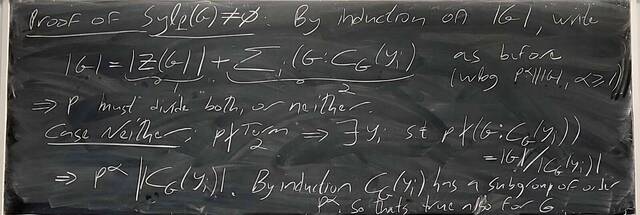 Proof of Sylp(G) ≠ ∅: By induction on |G|, write
|G| = |Z(G)| + Σi (G:CG(yi)) as before
1 2 (wlog pα||G|, α≥1)
⇒ p must divide both, or neither.
Case Neither: p∤Term 2 ⇒ ∃ yi st p∤(G:CG(yi))
= |G|/|CG(yi)|
⇒ pα ||CG(yi)|. By induction CG(yi) has a subgroup of order
pα. So thats true also for G.